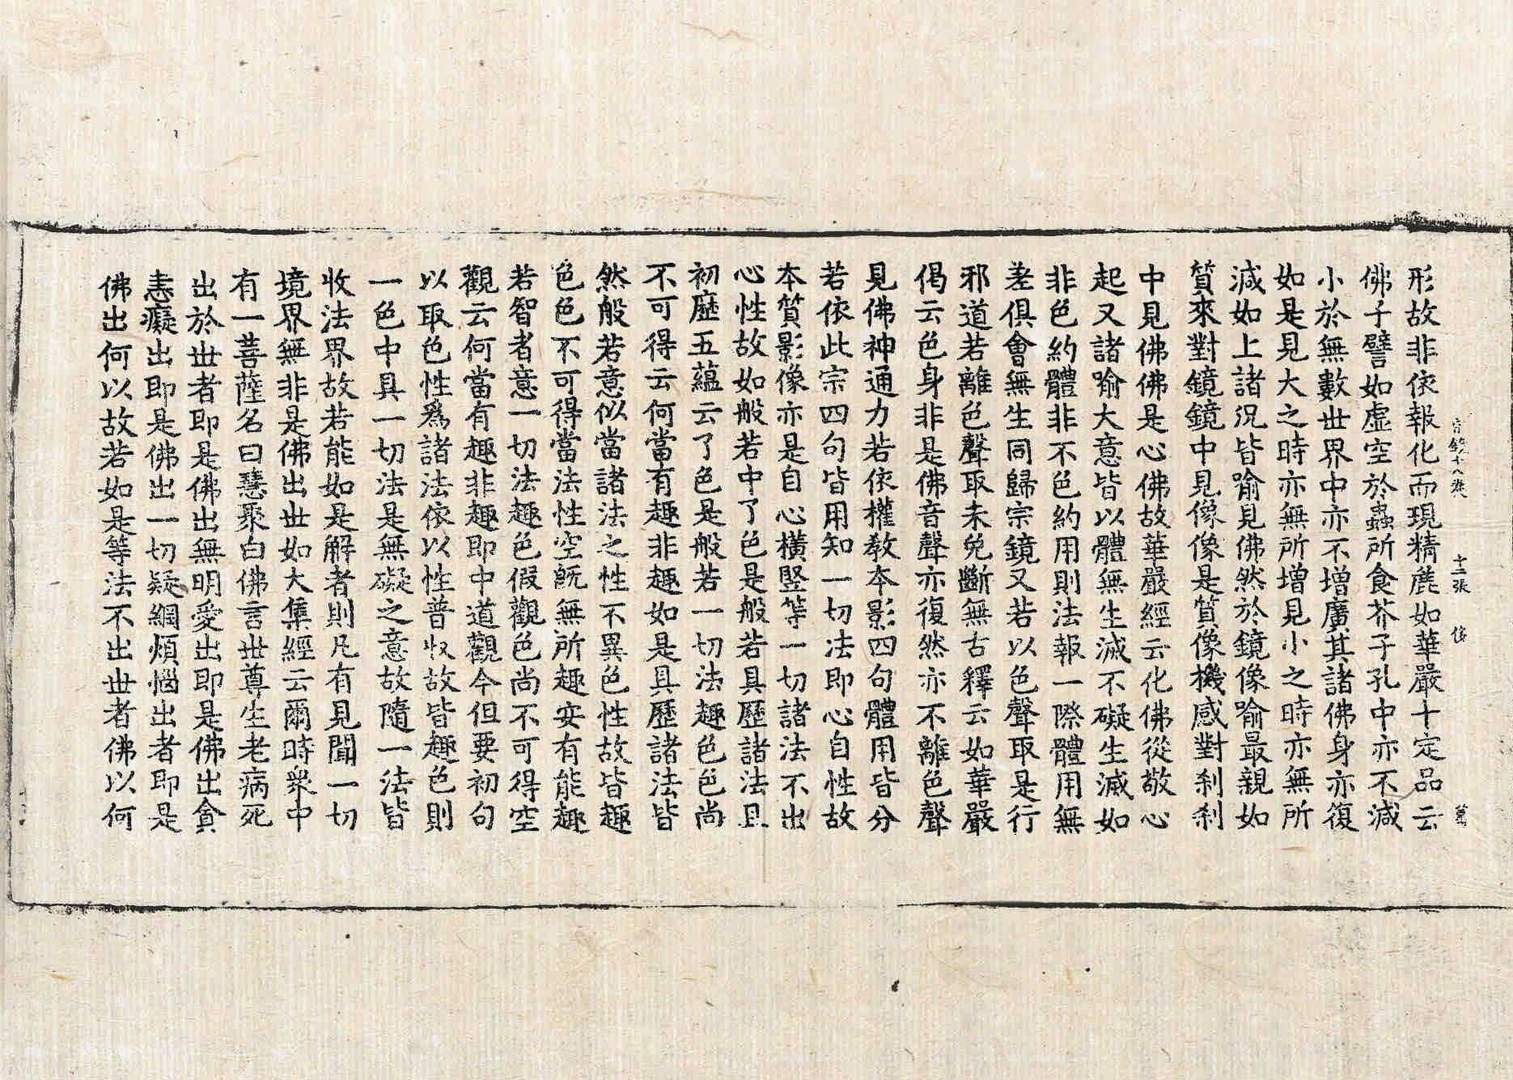 形故非依報化而現精麁如華嚴十定品云
佛子譬如虛空於蟲所食芥子孔中亦不減
小於無數世界中亦不增廣其諸佛身亦復
如是見大之時亦無所增見小之時亦無所
減如上諸況皆喻見佛然於鏡像喻最親如
質來對鏡鏡中見像像是質像機感對剎剎
中見佛佛是心佛故華嚴經云化佛從敬心
起又諸喻大意皆以體無生滅不礙生滅如
非色約體非不色約用則法報一際體用無
差俱會無生同歸宗鏡又若以色聲取是行
邪道若離色聲取未免斷無古釋云如華嚴
偈云色身非是佛音聲亦復然亦不離色聲
見佛神通力若依權教本影四句體用皆分
若依此宗四句皆用知一切法即心自性故
本質影像亦是自心橫竪等一切諸法不出
心性故如般若中了色是般若具歷諸法且
初歷五蘊云了色是般若一切法趣色色尚
不可得云何當有趣非趣如是具歷諸法皆
然般若意似當諸法之性不異色性故皆趣
色色不可得當法性空旣無所趣安有能趣
若智者意一切法趣色假觀色尚不可得空
觀云何當有趣非趣即中道觀今但要初句
以取色性爲諸法依以性普收故皆趣色則
一色中具一切法是無礙之意故隨一法皆
收法界故若能如是解者則凡有見聞一切
境界無非是佛出世如大集經云爾時衆中
有一菩薩名曰慧聚白佛言世尊生老病死
出於世者即是佛出無明愛出即是佛出貪
恚癡出即是佛出一切疑網煩惱出者即是
佛出何以故若如是等法不出世者佛以何